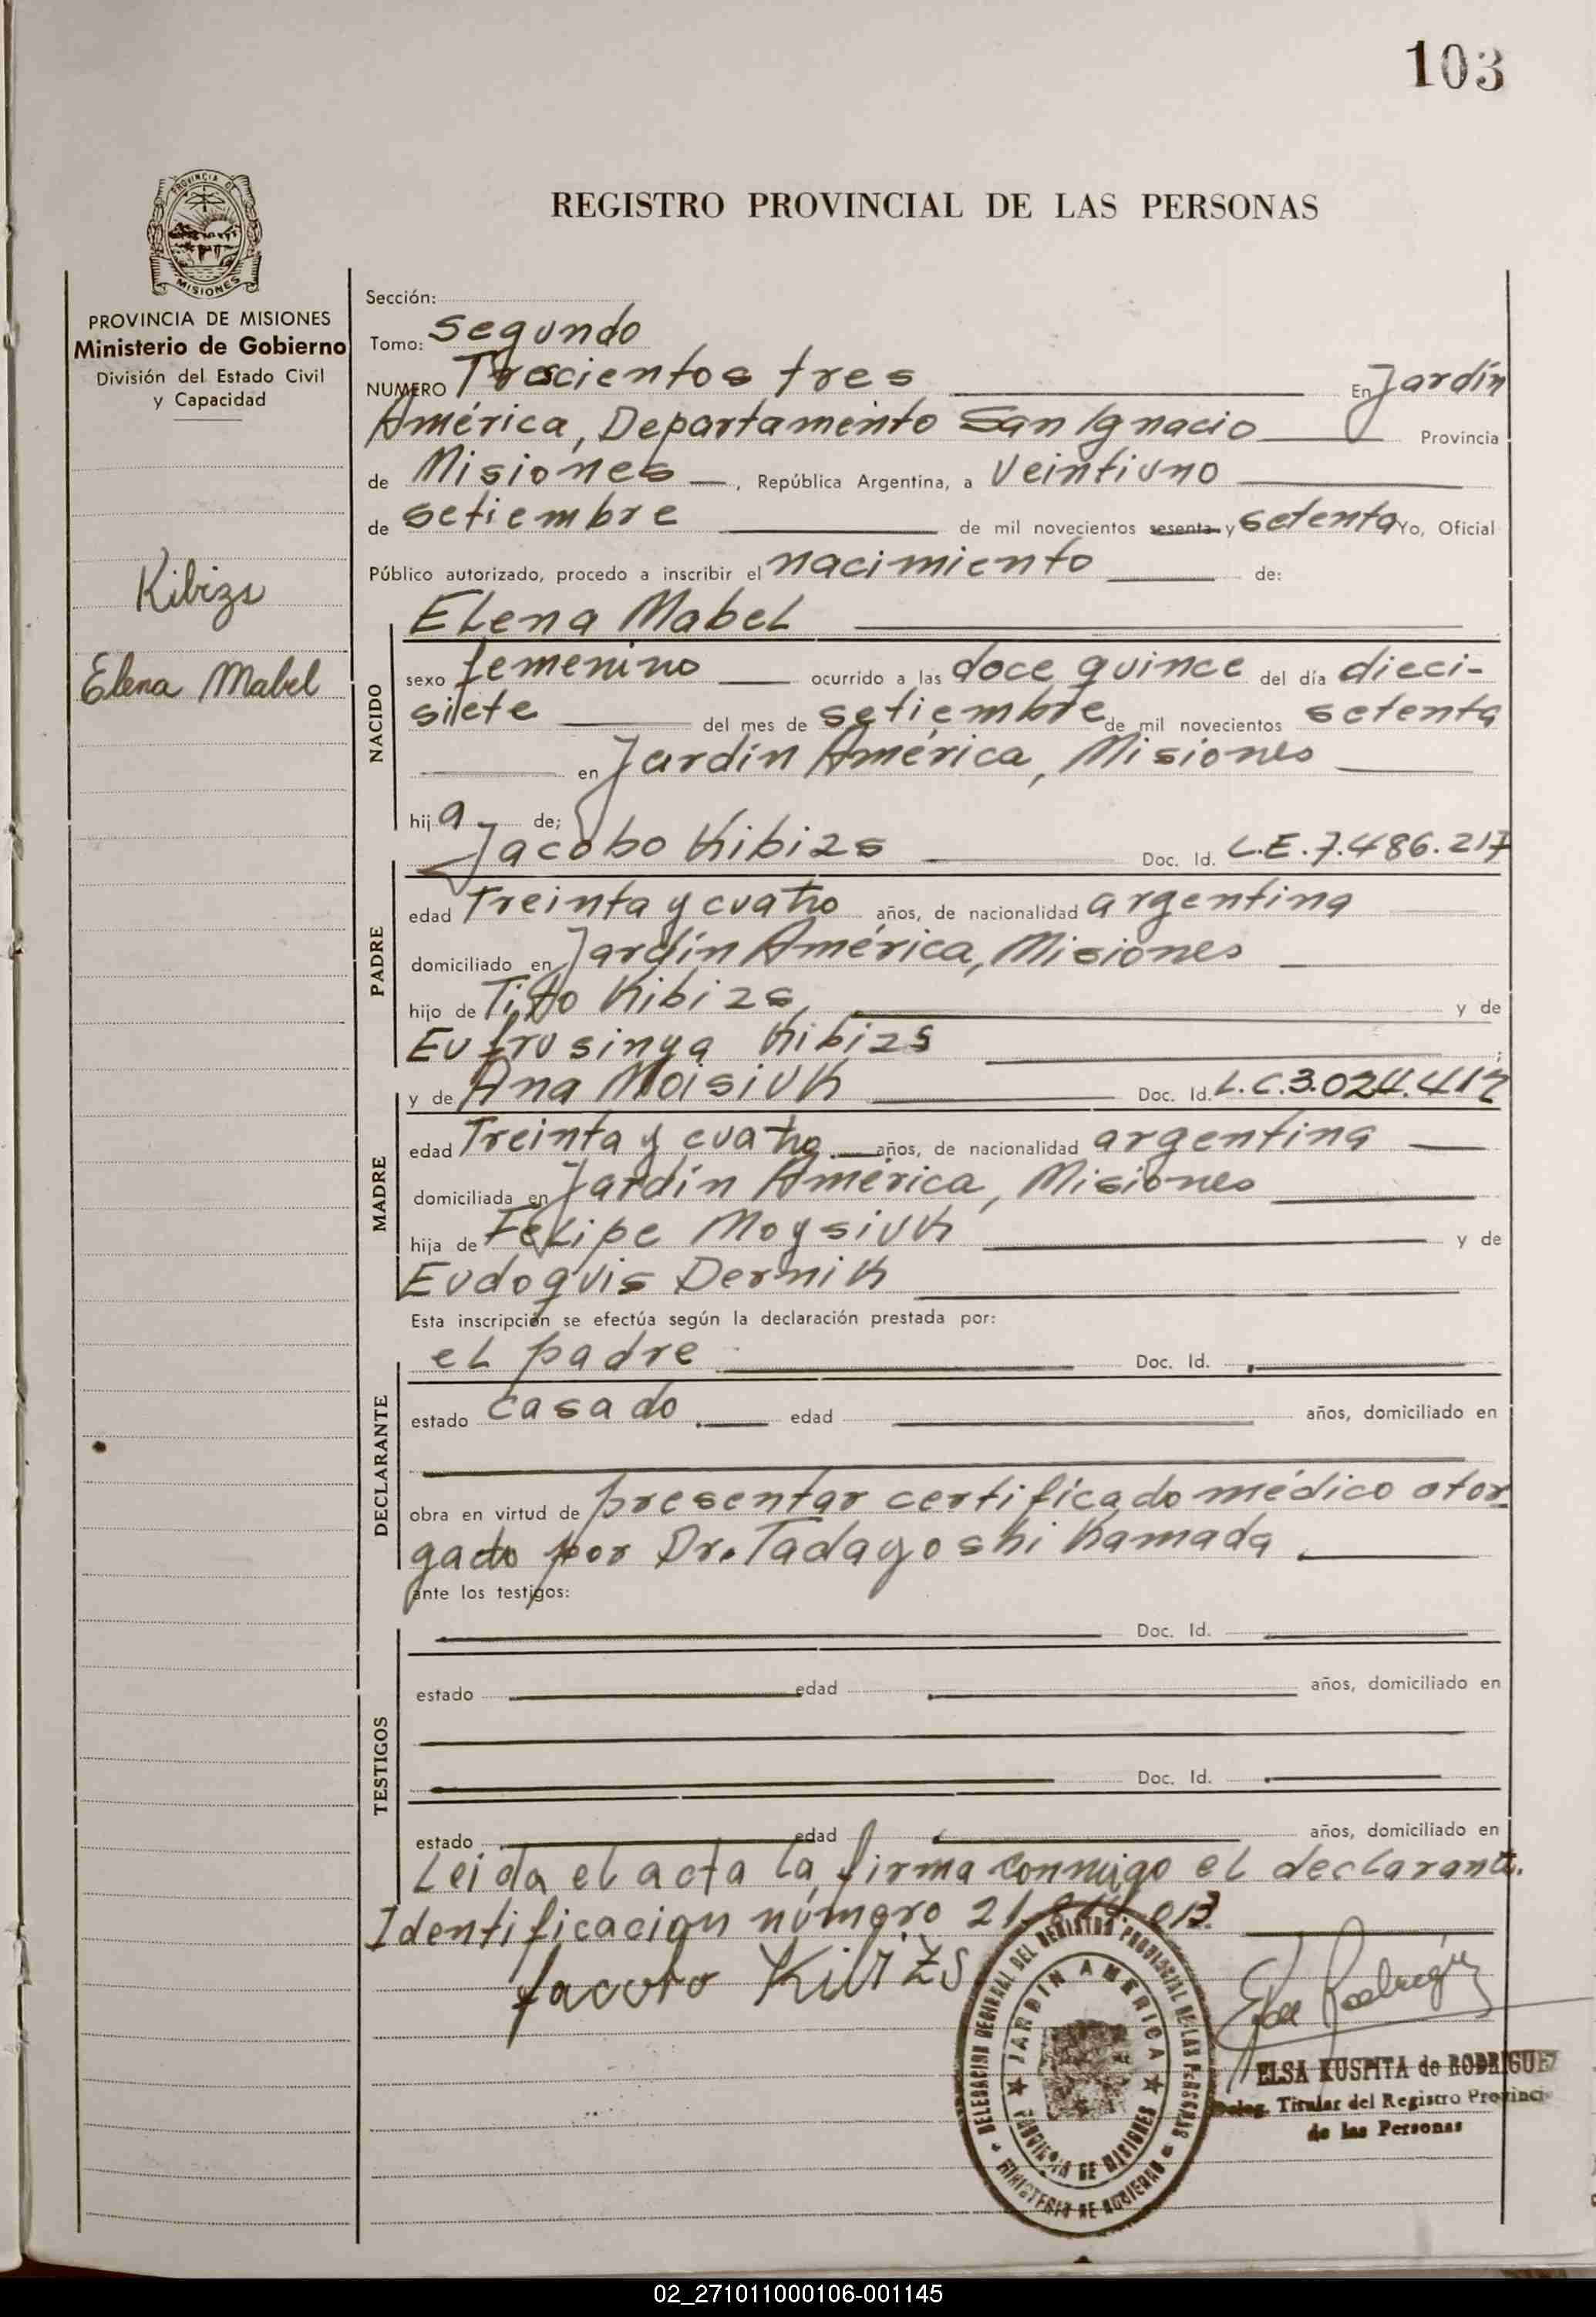 103
PROVINCIA DE
MISIONES
REGISTRO PROVINCIAL DE LAS PERSONAS
PROVINCIA DE MISIONES
Ministerio de Gobierno
División del Estado Civil
y Capacidad
Kibizs
Elena Mabel
Sección:
Tomo: Segundo
NUMERO Trescientos tres En Jardín
América, Departamento San Ignacio Provincia
de Misiones, República Argentina, a Veintiuno
de setiembre de mil novecientos sesenta y setenta Yo, Oficial
Público autorizado, procedo a inscribir el nacimiento de:
Elena Mabel
NACIDO
sexo femenino ocurrido a las doce quince del día dieci-
siete del mes de setiembre de mil novecientos setenta
en Jardín América, Misiones
hija de;
Jacobo Kibizs Doc. Id. L.E. 7.486.217
PADRE
edad Treinta y cuatro años, de nacionalidad argentina
domiciliado en Jardín América, Misiones
hijo de Tito Kibizs y de
Eufrusinya Kibizs;
y de Ana Moisiuk Doc. Id. L.C.3.024.412
MADRE
edad Treinta y cuatro años, de nacionalidad argentina
domiciliada en Jardín América, Misiones
hija de Felipe Moysiuk y de
Eudoquis Dernik
Esta inscripción se efectúa según la declaración prestada por:
el padre Doc. Id.
DECLARANTE
estado casado edad años, domiciliado en
obra en virtud de presentar certificado médico otor
gado por Dr. Tadayoshi Kamada
ante los testigos:
Doc. Id.
TESTIGOS
estado edad años, domiciliado en
Doc. Id.
estado edad años, domiciliado en
Leida el acta la firma conmigo el declarante.
Identificacion número 21. 013.
Jacobo Kibizs
DELEGACION REGIONAL DEL REGISTRO PROVINCIAL DE LAS PERSONAS
MINISTERIO DE GOBIERNO
JARDIN AMERICA
PROVINCIA DE MISIONES
Elsa Rodríguez
ELSA KUSPITA de RODRIGUEZ
Deleg. Titular del Registro Provinci
de las Personas
02_271011000106-001145